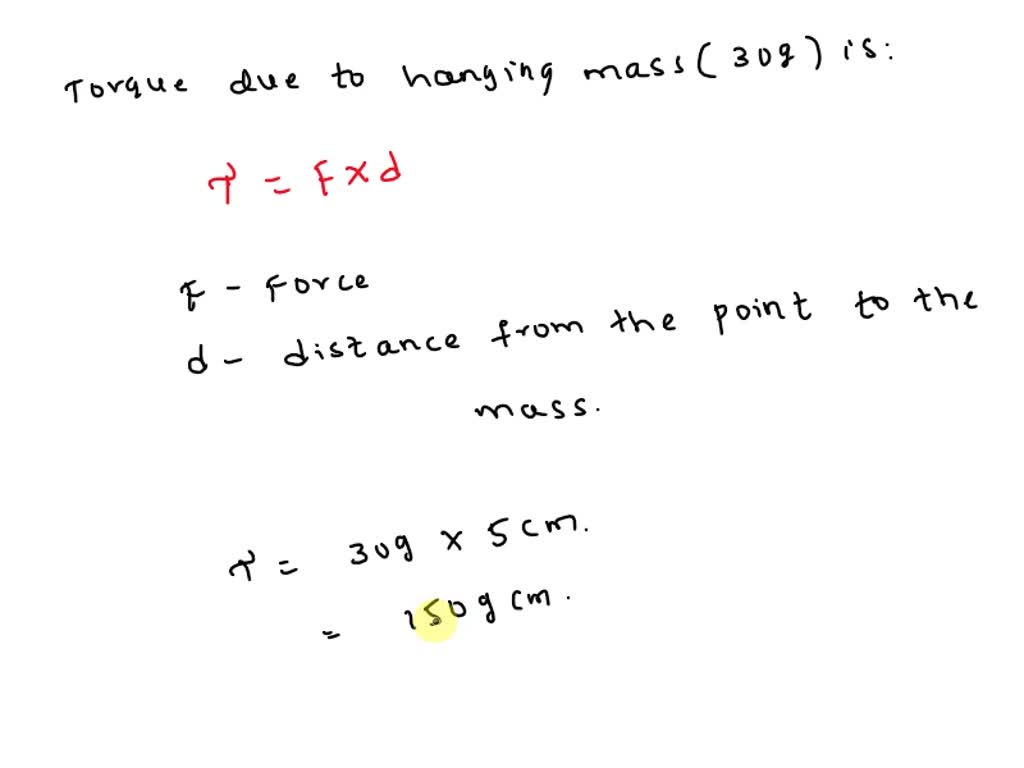 Torque due to hanging mass (30g) is:
τ = F x d
F - Force
d - distance from the point to the
mass.
τ = 30g x 5cm.
= 150g cm.